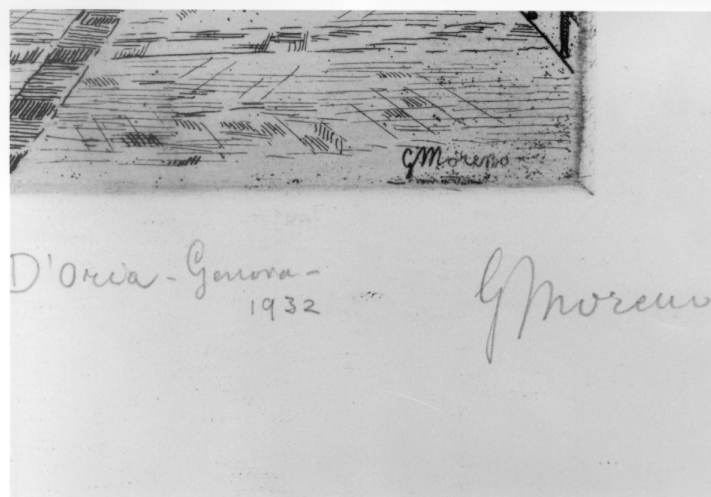 GMoreno
D'Oria - Genova -
1932
GMoreno